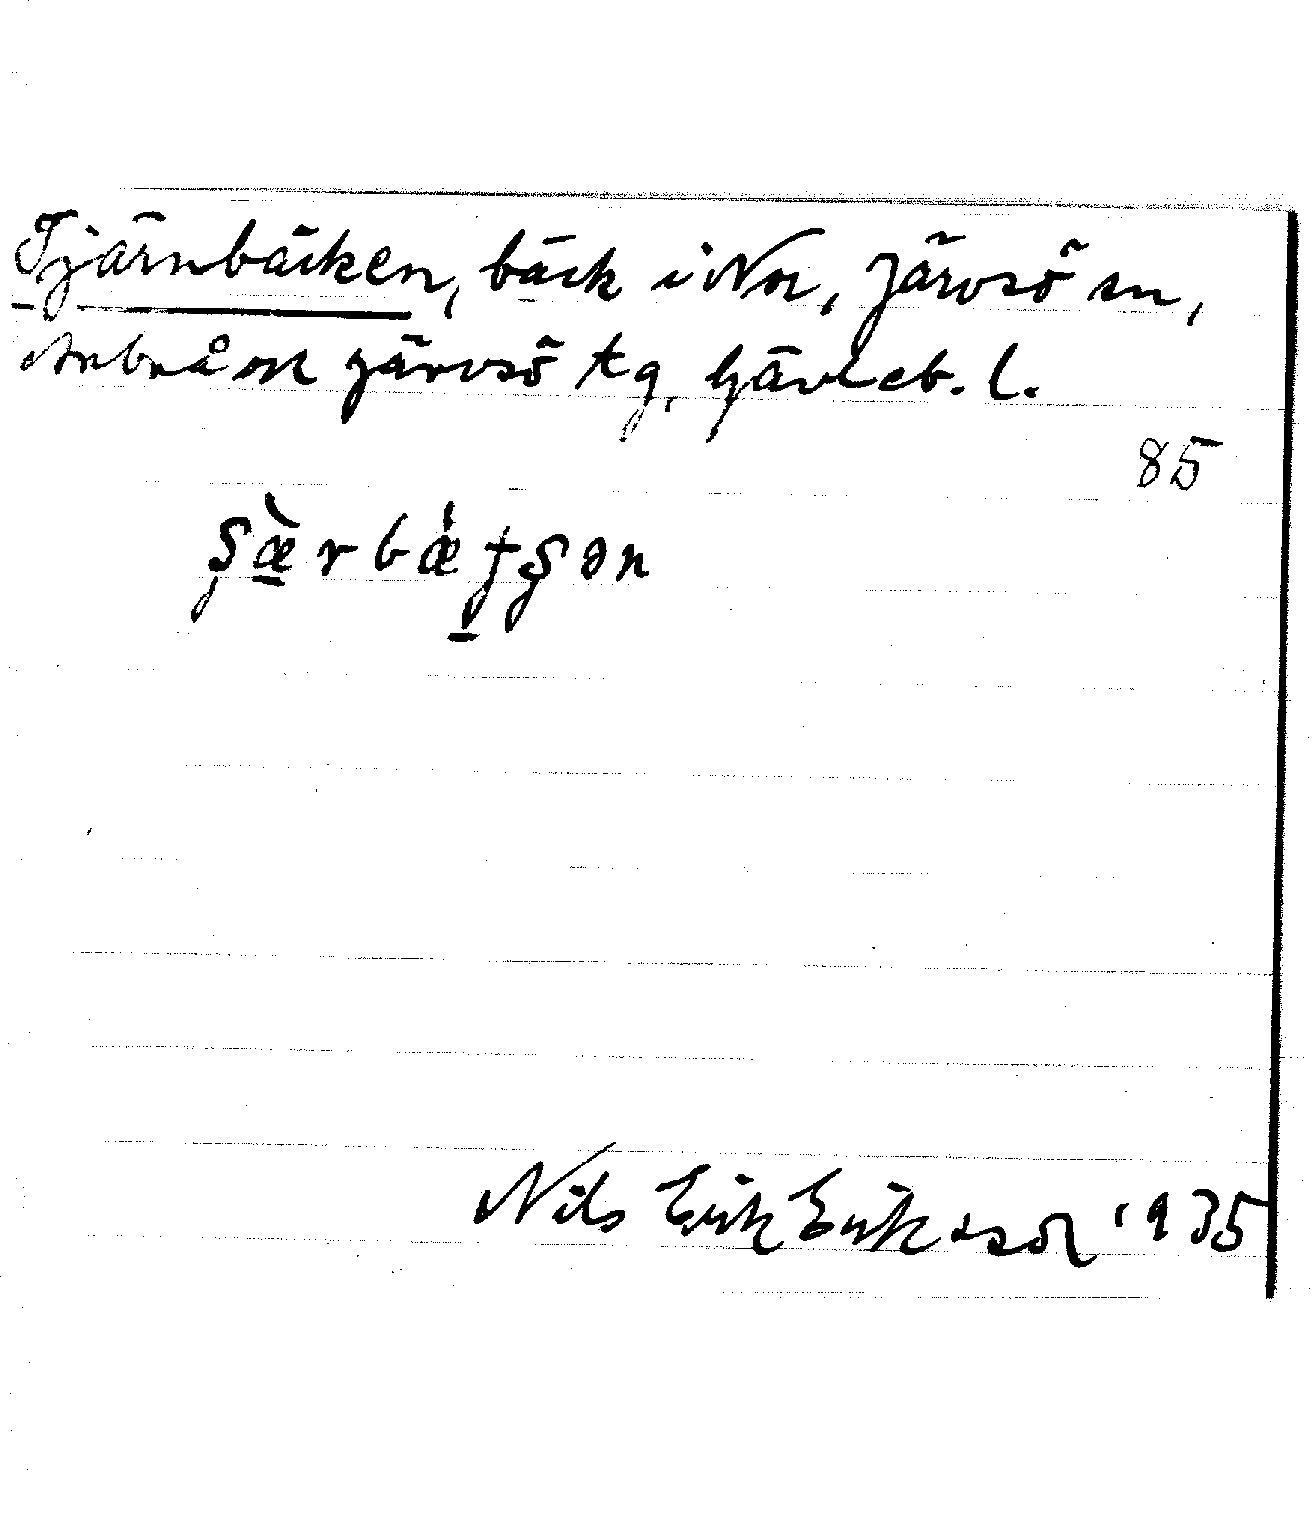 Tjärnbäcken, bäck i Nor, Järvsö sn,
Arbrå ok Järvsö tg, Gävleb. l.
85
Nils Erik Eriksson 1935